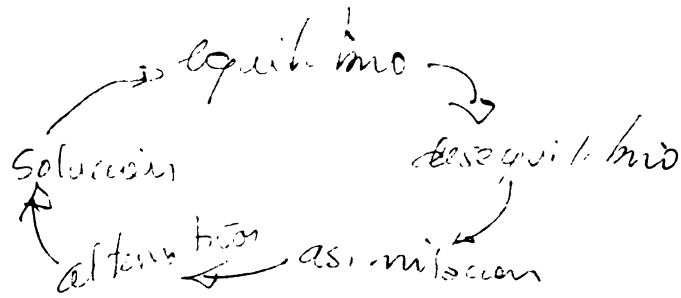 equilibrio
desequilibrio
asimilacion
alternativas
solución